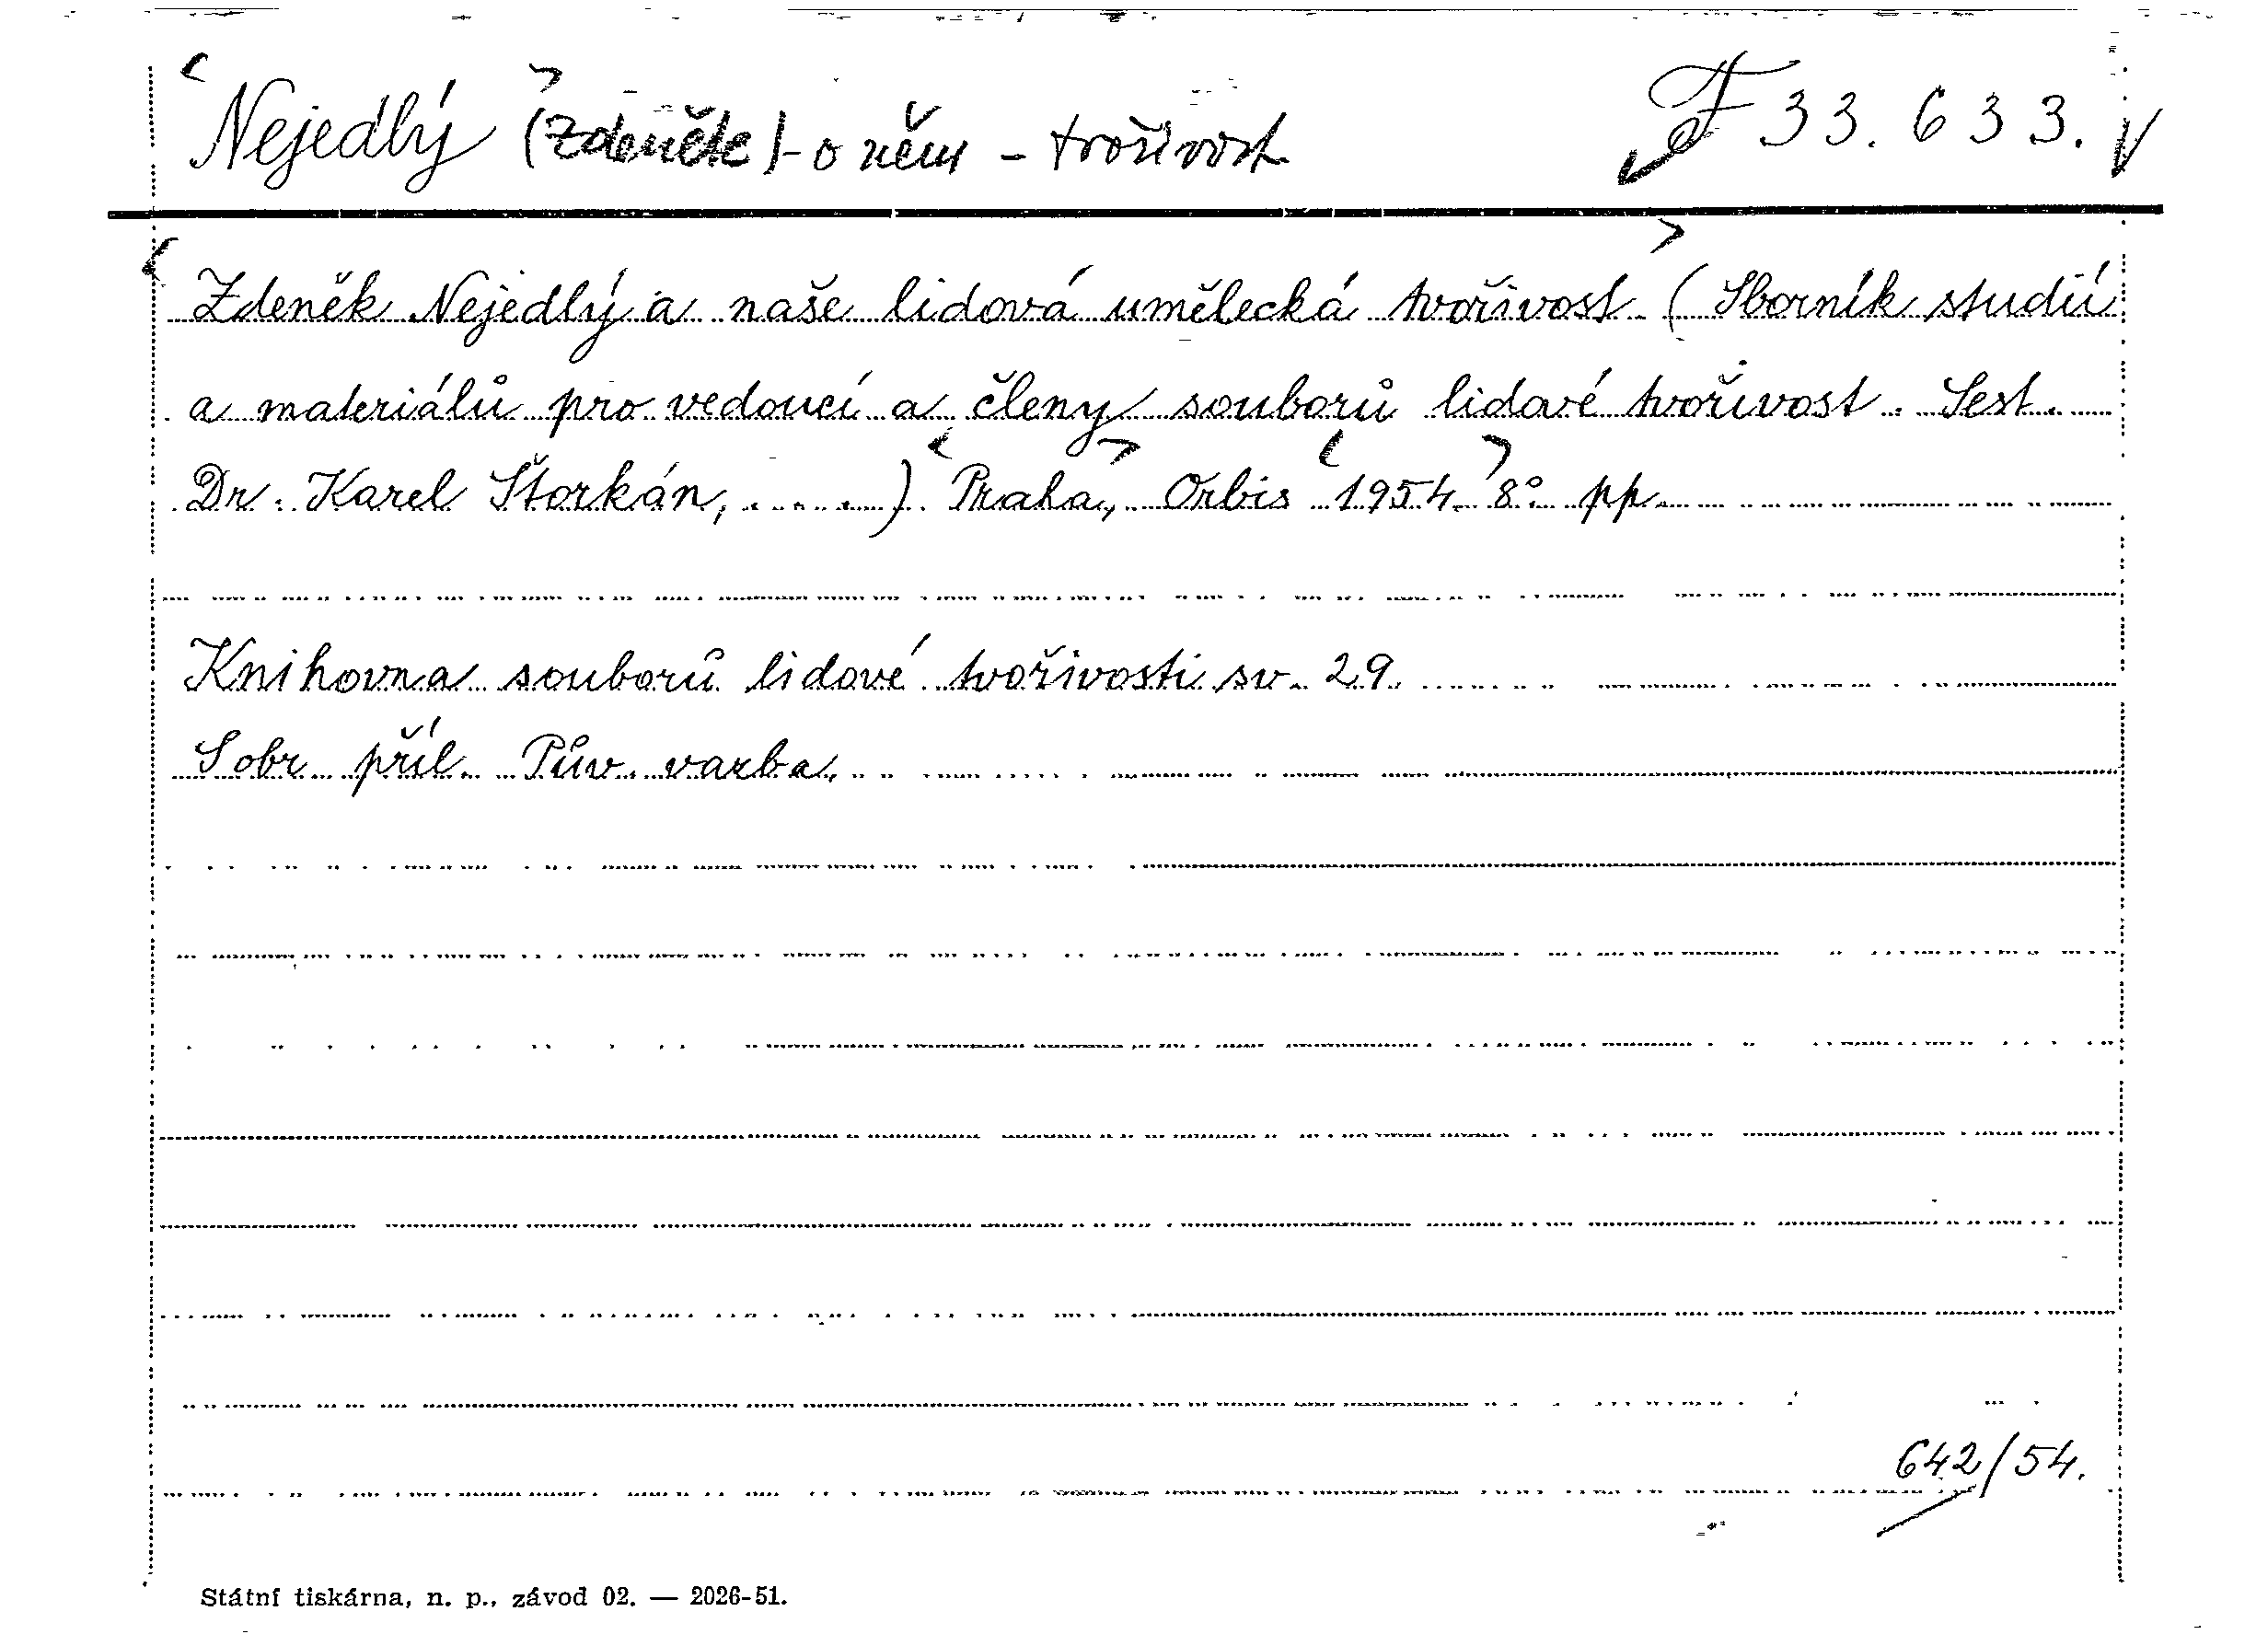 Nejedlý (Zdeněk) - o něm - tvořivost F 33.633.
Zdeněk Nejedlý a naše lidová umělecká tvořivost (Sborník studií
a materiálů pro vedoucí a členy souborů lidové tvořivost. Sest.
Dr. Karel Štorkán, .....) Praha, Orbis 1954 8° pp.
Knihovna souborů lidové tvořivosti sv. 29.
S obr. příl. Pův. vazba.
642/54.
Státní tiskárna, n. p., závod 02. — 2026-51.